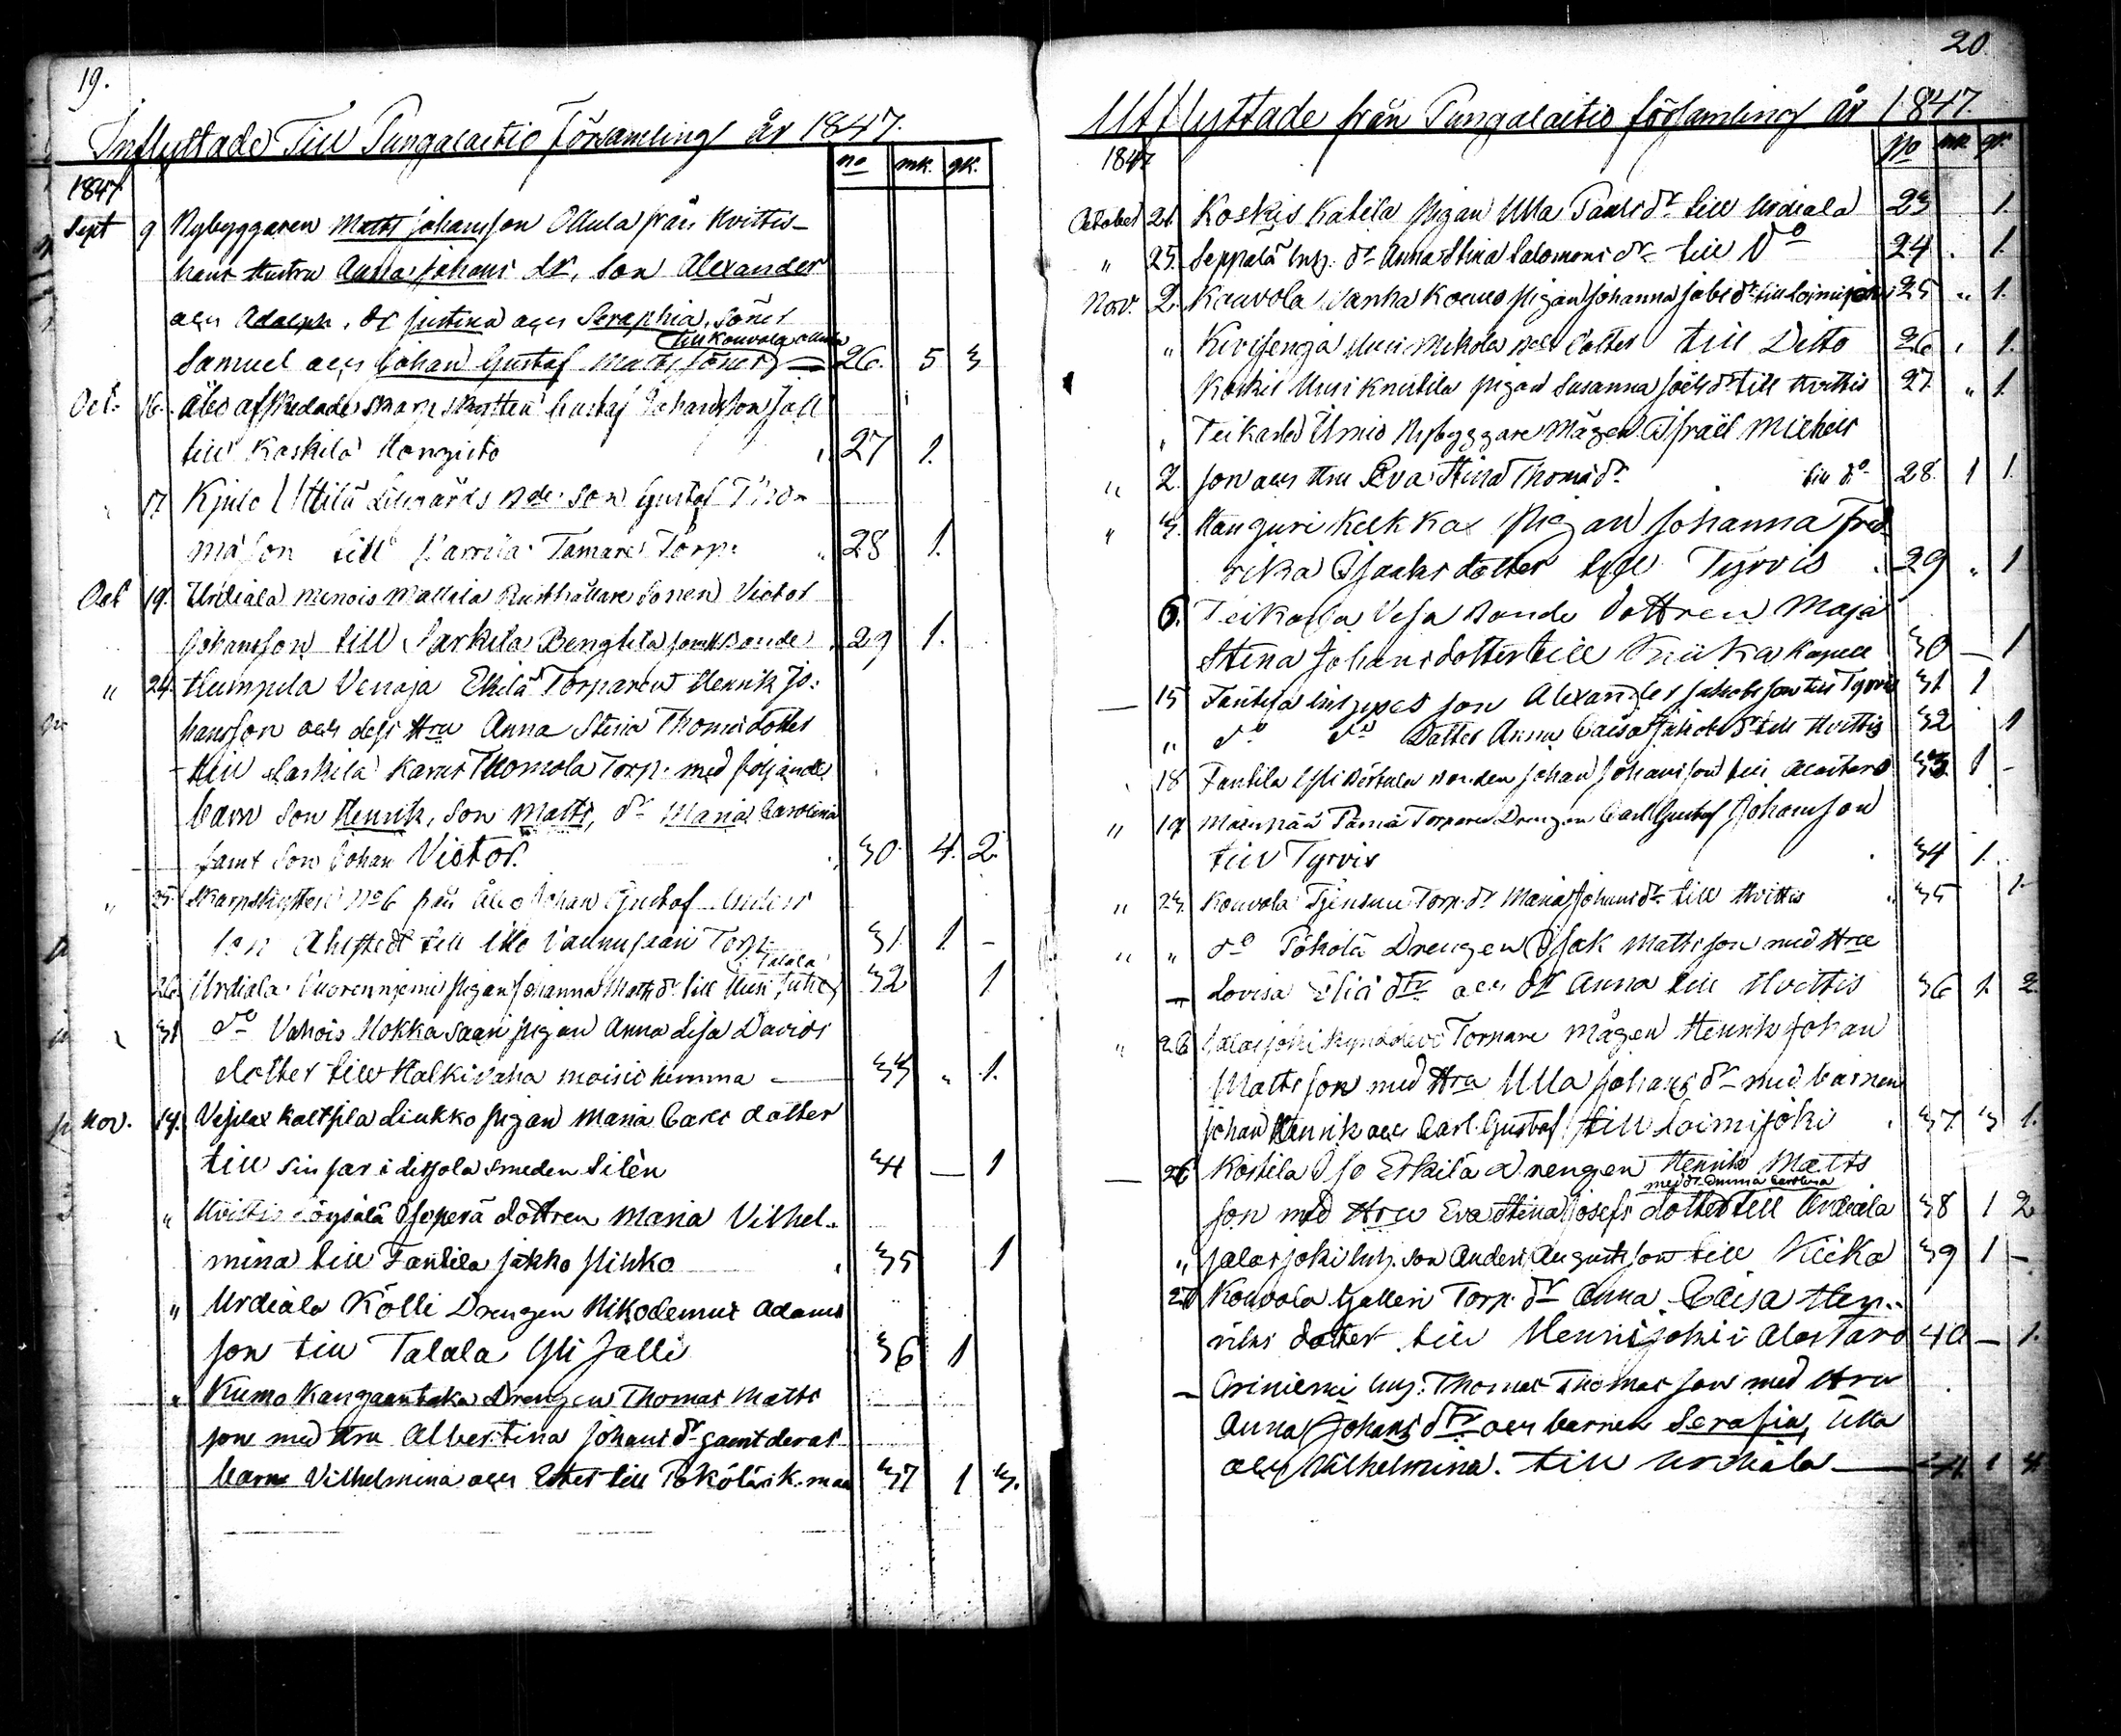 19.
Inflyttade Till Pungalaitio församling år 1847.
no mk. qk.
1847
Sept 9 Nybyggaren Matts Johansson Ollula från Hvittis
hans Hustru Anna Johans dr, Son Alexander
och Adolph, dr Justina och Seraphia, Söner
till Kouvola Ollula
Samuel och Johan Gustaf Matts Söner 26. 5 3
Oct. 16. Åbo afskedade skarpskytten Gustaf Johansson Jall
till Kaskila Hongisto 27 1.
17 Kjulo Uttila Gustaf Tho
mason till Tamare Torp. 28 1.
Oct 19. Urdiala Menois Mallila Rusthållare Sonen Victor
Johansson till Sarkila Bengtila Bonde 29 1.
" 24. Humpila Venoja Ekilä Torparen Henrik Jo-
hansson och dess Hru Anna Stina Thomsdotter
till Sarkila Karus Thomola Torp. med följande
barn Son Henrik, Son Matts, dr Maria Carolina
samt Son Johan Victor. 30 4. 2.
" 25. Skarpskytten No 6 från Åbo Johan Gustaf Anders
son Ahlstedt till Torp. 31. 1. -
Talala
26. Urdiala Vuorenniemi pigan Johanna Matts dr till Uusi 32 1
31 do Vahois Hokkasaari pigan Anna Lisa Davids
dotter till Halkivaha moisio hemma 33 " 1.
Nov. 14. Vesilax Kaltsila Liukko pigan Maria Carls dotter
till sin far i smeden Silén 34 — 1
" Hvittis dottren Maria Vilhel-
mina till Fantila Jakko 35 1
" Urdiala Kölli Drengen Nikodemus Adams
son till Talala Yli Jalli 36 1
" Kumo Kangaantaka Drengen Thomas Matts
son med Hru Albertina Johans dr samt deras
barn Vilhelmina och Ester till 37 1 3.
20.
Utflyttade från Pungalaitio församling år 1847.
1847 No mk. qk.
October 21. Koskis Katila pigan Ulla Pauls dr till Urdiala 23 1.
" 25. Seppälä Inh. dr Anna Stina Salomons dr till Do 24 . 1.
Nov. 2. Kouvola pigan Johanna Jakobs dr till Loimijoki 25 " 1.
" Kivisenoja Uusi Mikola dotter till Ditto 26 . 1.
Koskis Uusi Knuutila pigan Susanna Joels dr till Hvittis 27 " 1.
" Teikarla Nybyggare Mågen Israël Michels
" 2. son och Hru Eva Stina Thoms dr till do 28. 1 1.
" 3. Hanguri Kukkas pigan Johanna Fred
rika Isaaks dotter till Tyrvis 29 " 1
6. Teikarla Vesa Bonde Dottren Maja
Stina Johans dotter till Kiika Kapell 30 — 1
— 15 Fantila Inhyses son Alexander Jakobsson till Tyrvis 31 1
" do do Dotter Anna Caisa Jakobs dr till Hvittis 32 1
18 Fantila Yli Bonden Johan Johansson till Alastaro 33 1 -
" 19 Torpare Drengen Carl Gustaf Johansson
till Tyrvis 34 1.
" 23. Kouvola Torp. dr Maria Johans dr till Hvittis 35 1
" " do Pökölä Drengen Isak Mattsson med Hru
— Lovisa Elia dtr och dr Anna till Hvittis 36 1. 2.
" 26 Jalasjoki Torpare Mågen Henrik Johan
Mattsson med Hru Ulla Johans dr med barnen
Johan Henrik och Carl Gustaf till Loimijoki 37 3 1.
— 26 Koskela Erkilä Drengen Henrik Matts
med dr Emma Carolina
son med Hru Eva Stina Josefs dotter till Urdiala 38 1 2
" Jalasjoki Inh. Son Anders Augustsson till Kiika 39 1 -
27 Kouvola Torp. dr Anna Caisa Hen-
riks dotter till Hennijoki i Alastaro 40 — 1.
— Inh. Thomas Thomasson med Hru
Anna Johans dtr och barnen Serafia, Ulla
och Vilhelmina. till Urdiala 41. 1 4.